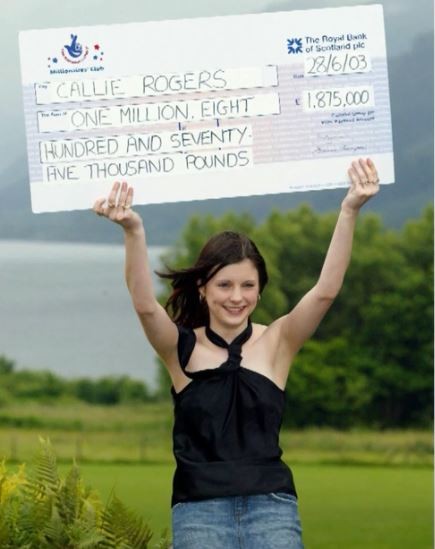 The Royal Bank
of Scotland plc
Millionaires' Club
Pay CALLIE ROGERS
Date 28/6/03
The Sum of ONE MILLION, EIGHT
£ 1,875,000
HUNDRED AND SEVENTY
FIVE THOUSAND POUNDS